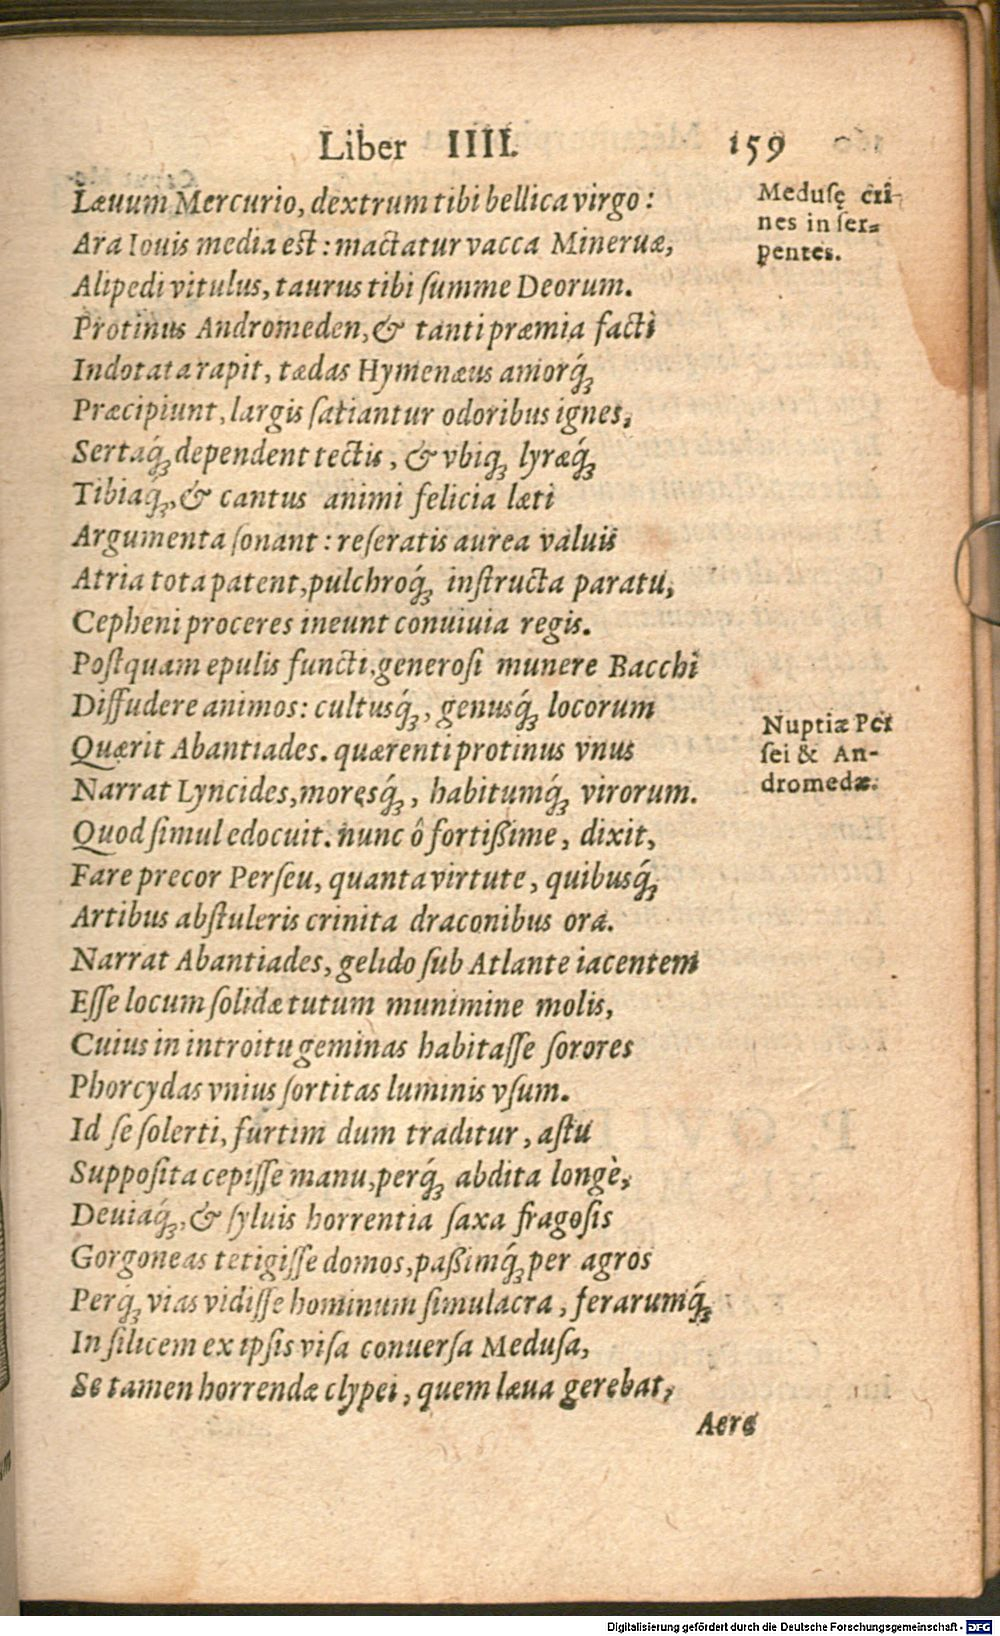 Liber IIII. 159
Læuum Mercurio, dextrum tibi bellica virgo:
Ara Iouis media est: mactatur vacca Mineruæ,
Alipedi vitulus, taurus tibi summe Deorum.
Protinus Andromeden, & tanti præmia facti
Indotata rapit, tædas Hymenæus amorq́;
Præcipiunt, largis satiantur odoribus ignes,
Sertaq́; dependent tectis, & vbiq; lyræq́;
Tibiaq́;, & cantus animi felicia læti
Argumenta sonant: reseratis aurea valuis
Atria tota patent, pulchroq́; instructa paratu,
Cepheni proceres ineunt conuiuia regis.
Postquam epulis functi, generosi munere Bacchi
Diffudere animos: cultusq́;, genusq́; locorum
Quærit Abantiades. quærenti protinus vnus
Narrat Lyncides, moresq́;, habitumq́; virorum.
Quod simul edocuit. nunc ô fortißime, dixit,
Fare precor Perseu, quanta virtute, quibusq́;
Artibus abstuleris crinita draconibus ora.
Narrat Abantiades, gelido sub Atlante iacentem
Esse locum solidæ tutum munimine molis,
Cuius in introitu geminas habitasse sorores
Phorcydas vnius sortitas luminis vsum.
Id se solerti, furtim dum traditur, astu
Supposita cepisse manu, perq́; abdita longè,
Deuiaq́;, & syluis horrentia saxa fragosis
Gorgoneas tetigisse domos, paßimq́; per agros
Perq́; vias vidisse hominum simulacra, ferarumq́;
In silicem ex ipsis visa conuersa Medusa,
Se tamen horrendæ clypei, quem læua gerebat,
Aere
Medusę cri-
nes in ser-
pentes.
Nuptiæ Per
sei & An-
dromedæ.
Digitalisierung gefördert durch die Deutsche Forschungsgemeinschaft - DFG